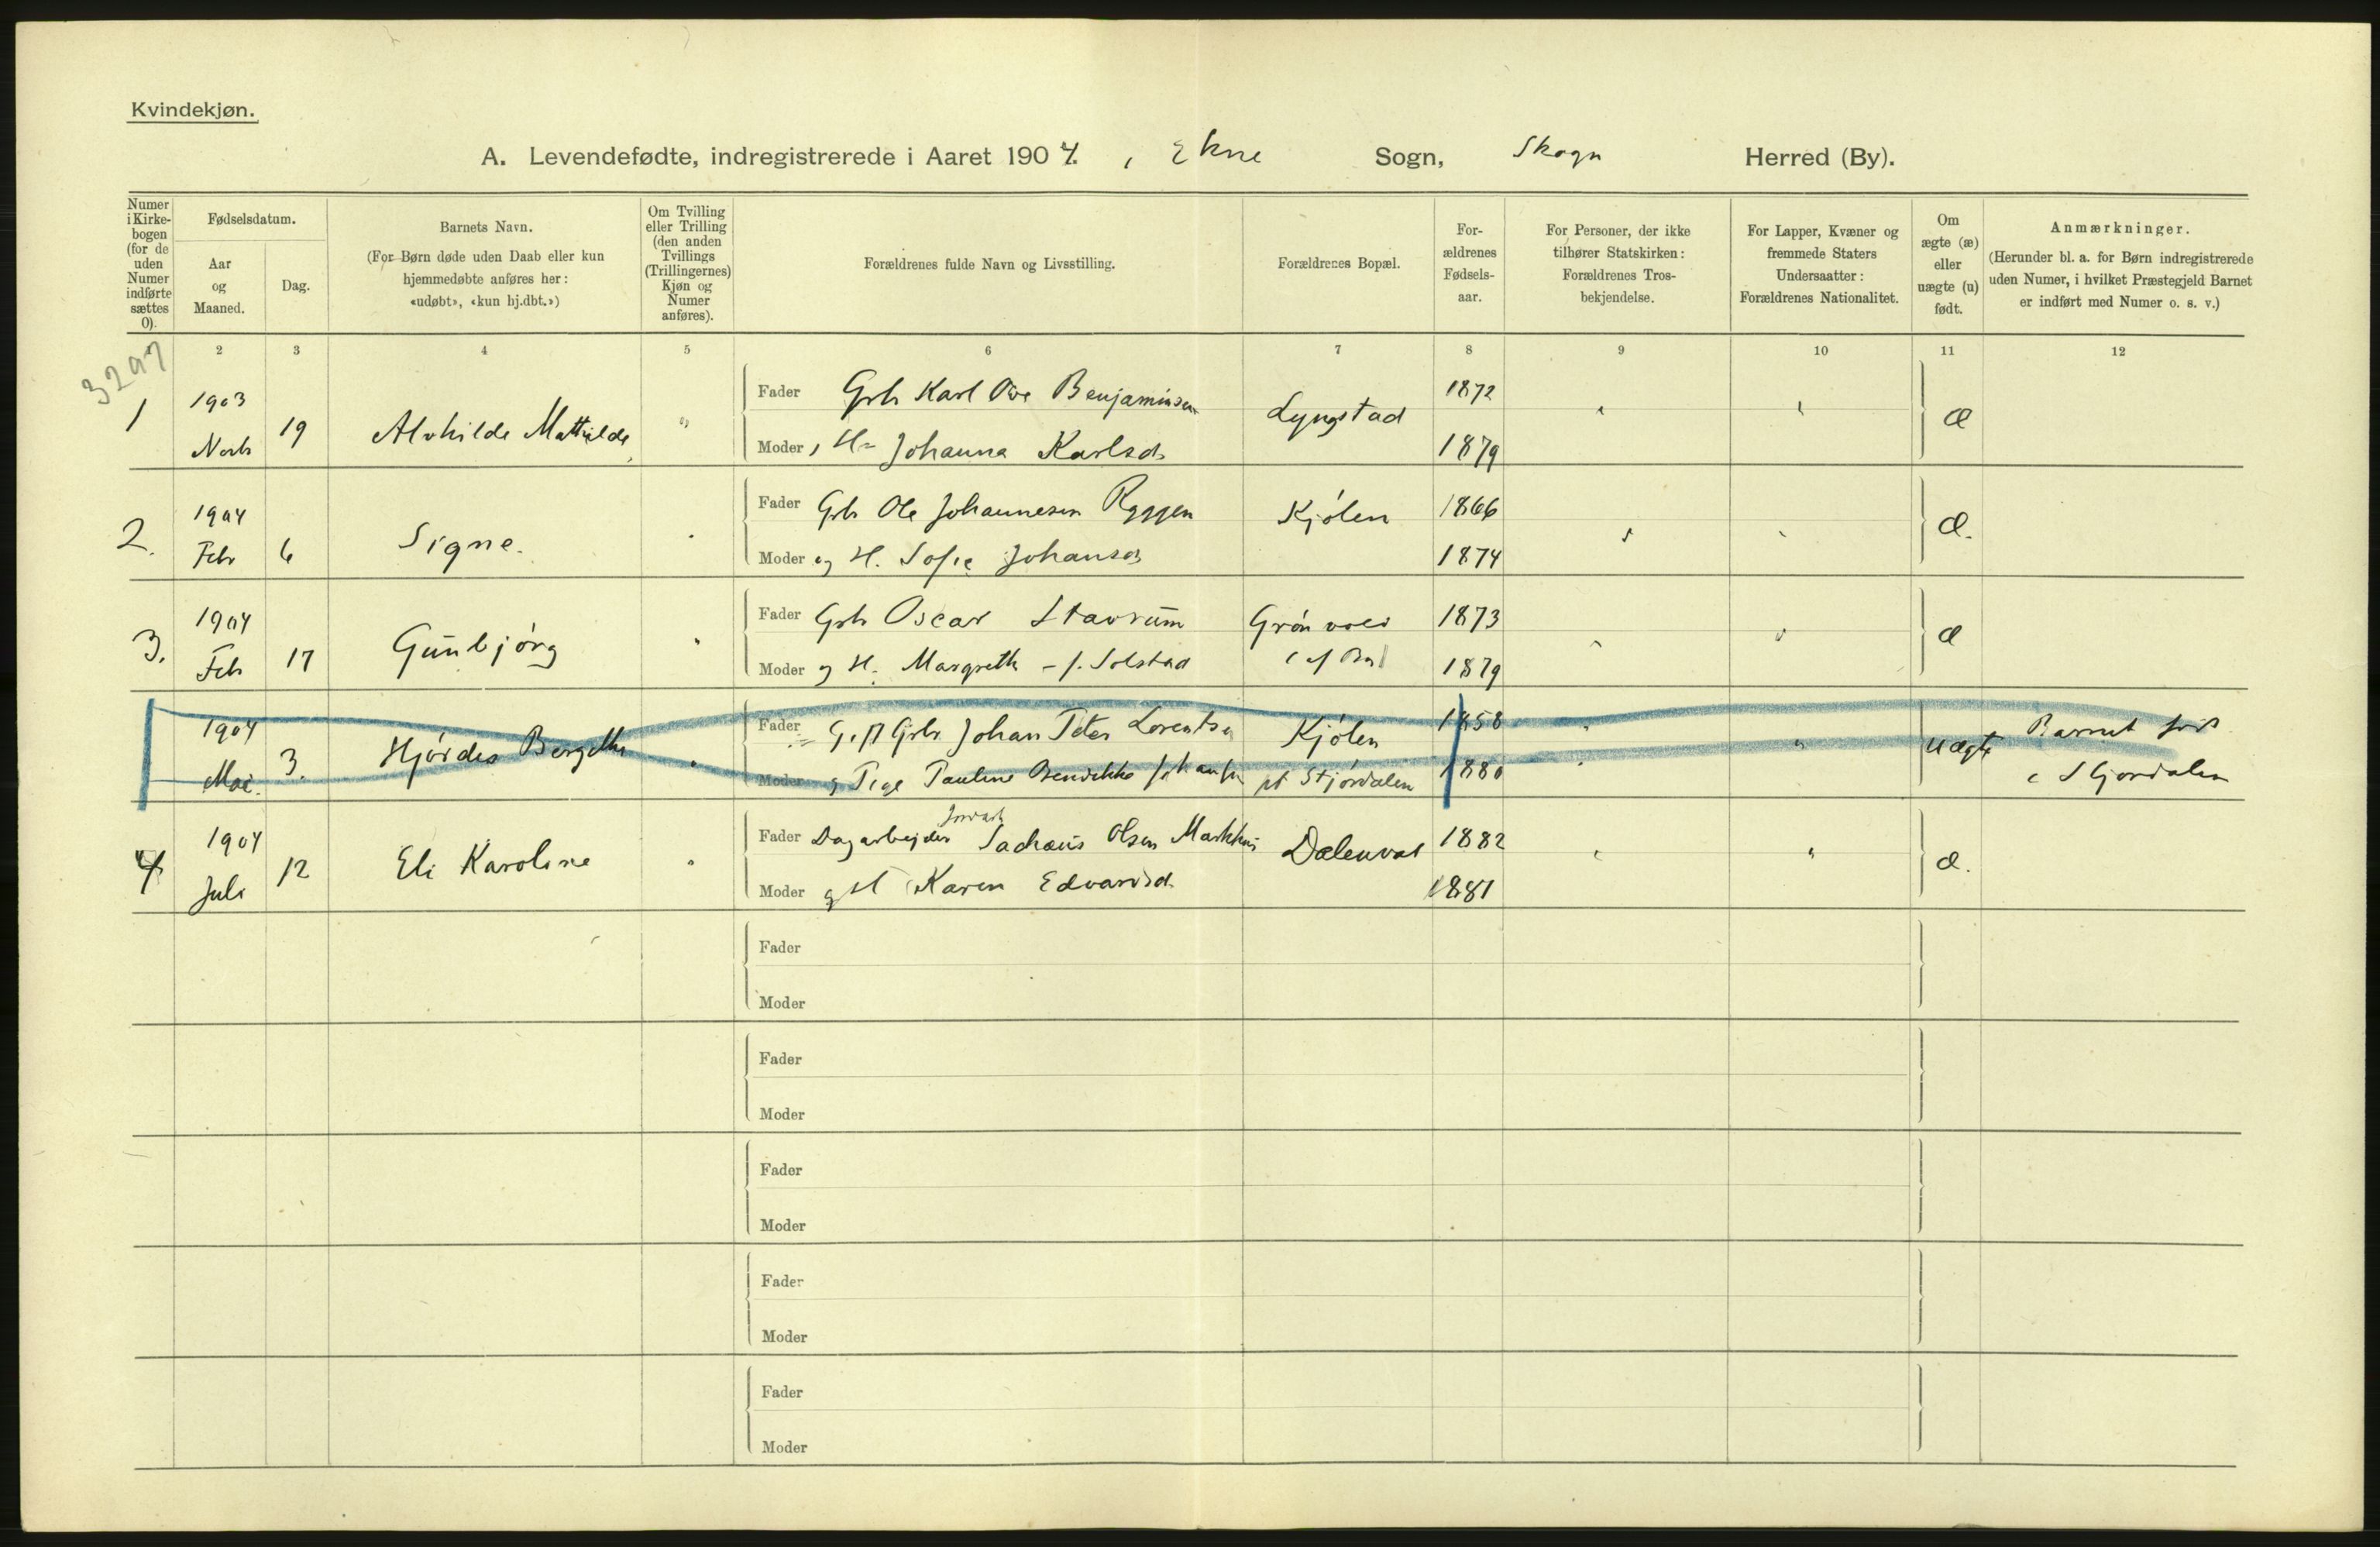 Kvindekjøn.
A. Levendefødte, indregistrerede i Aaret 1904. , Ekne Sogn, Skogn Herred (By).
Numer i Kirkebogen (for de uden Numer indførte sættes 0).
Fødselsdatum.
Aar og Maaned.
Dag.
Barnets Navn.
(For Børn døde uden Daab eller kun
hjemmedøbte anføres her:
«udøbt», «kun hj.dbt.»)
Om Tvilling
eller Trilling
(den anden
Tvillings
(Trillingernes)
Kjøn og
Numer
anføres).
Forældrenes fulde Navn og Livsstilling.
Forældrenes Bopæl.
For-
ældrenes
Fødsels-
aar.
For Personer, der ikke
tilhører Statskirken:
Forældrenes Tros-
bekjendelse.
For Lapper, Kvæner og
fremmede Staters
Undersaatter:
Forældrenes Nationalitet.
Om
ægte (æ)
eller
uægte (u)
født.
Anmærkninger.
(Herunder bl. a. for Børn indregistrerede
uden Numer, i hvilket Præstegjeld Barnet
er indført med Numer o. s. v.)
3297
2 3 4 5 6 7 8 9 10 11 12
1 1903 Novb 19 Alvhilde Mathilde "
Fader Grb Karl Ove Benjaminsen Lyngstad 1872
Moder , H= Johanna Karlsd. 1879 æ
2. 1904 Febr 6 Signe.
Fader Grb Ole Johannesen Ryggen Kjølen 1866
Moder og H. Sofie Johansd 1874 æ.
3. 1904 Feb 17 Gunbjørg
Fader Grb Oscar Stavrum Grønvold 1873
Moder og H. Margreth - f. Solstad 1879 æ
1904 Mai. 3. Hjørdes Bergithe
Fader Gift Grb. Johan Peter Lorentsen Kjølen 1858
Moder og Pige Pauline Bendikke Johansen pt Stjørdalen 1880 uægte
Barnet født
i Stjørdalen
4 1904 Juli 12 Eli Karoline
Fader Dagarbejder Sachæus Olsen Markhus Dalenvat 1882
Moder og H Karen Edvardsd. 1881 æ.
Fader
Moder
Fader
Moder
Fader
Moder
Fader
Moder
Fader
Moder